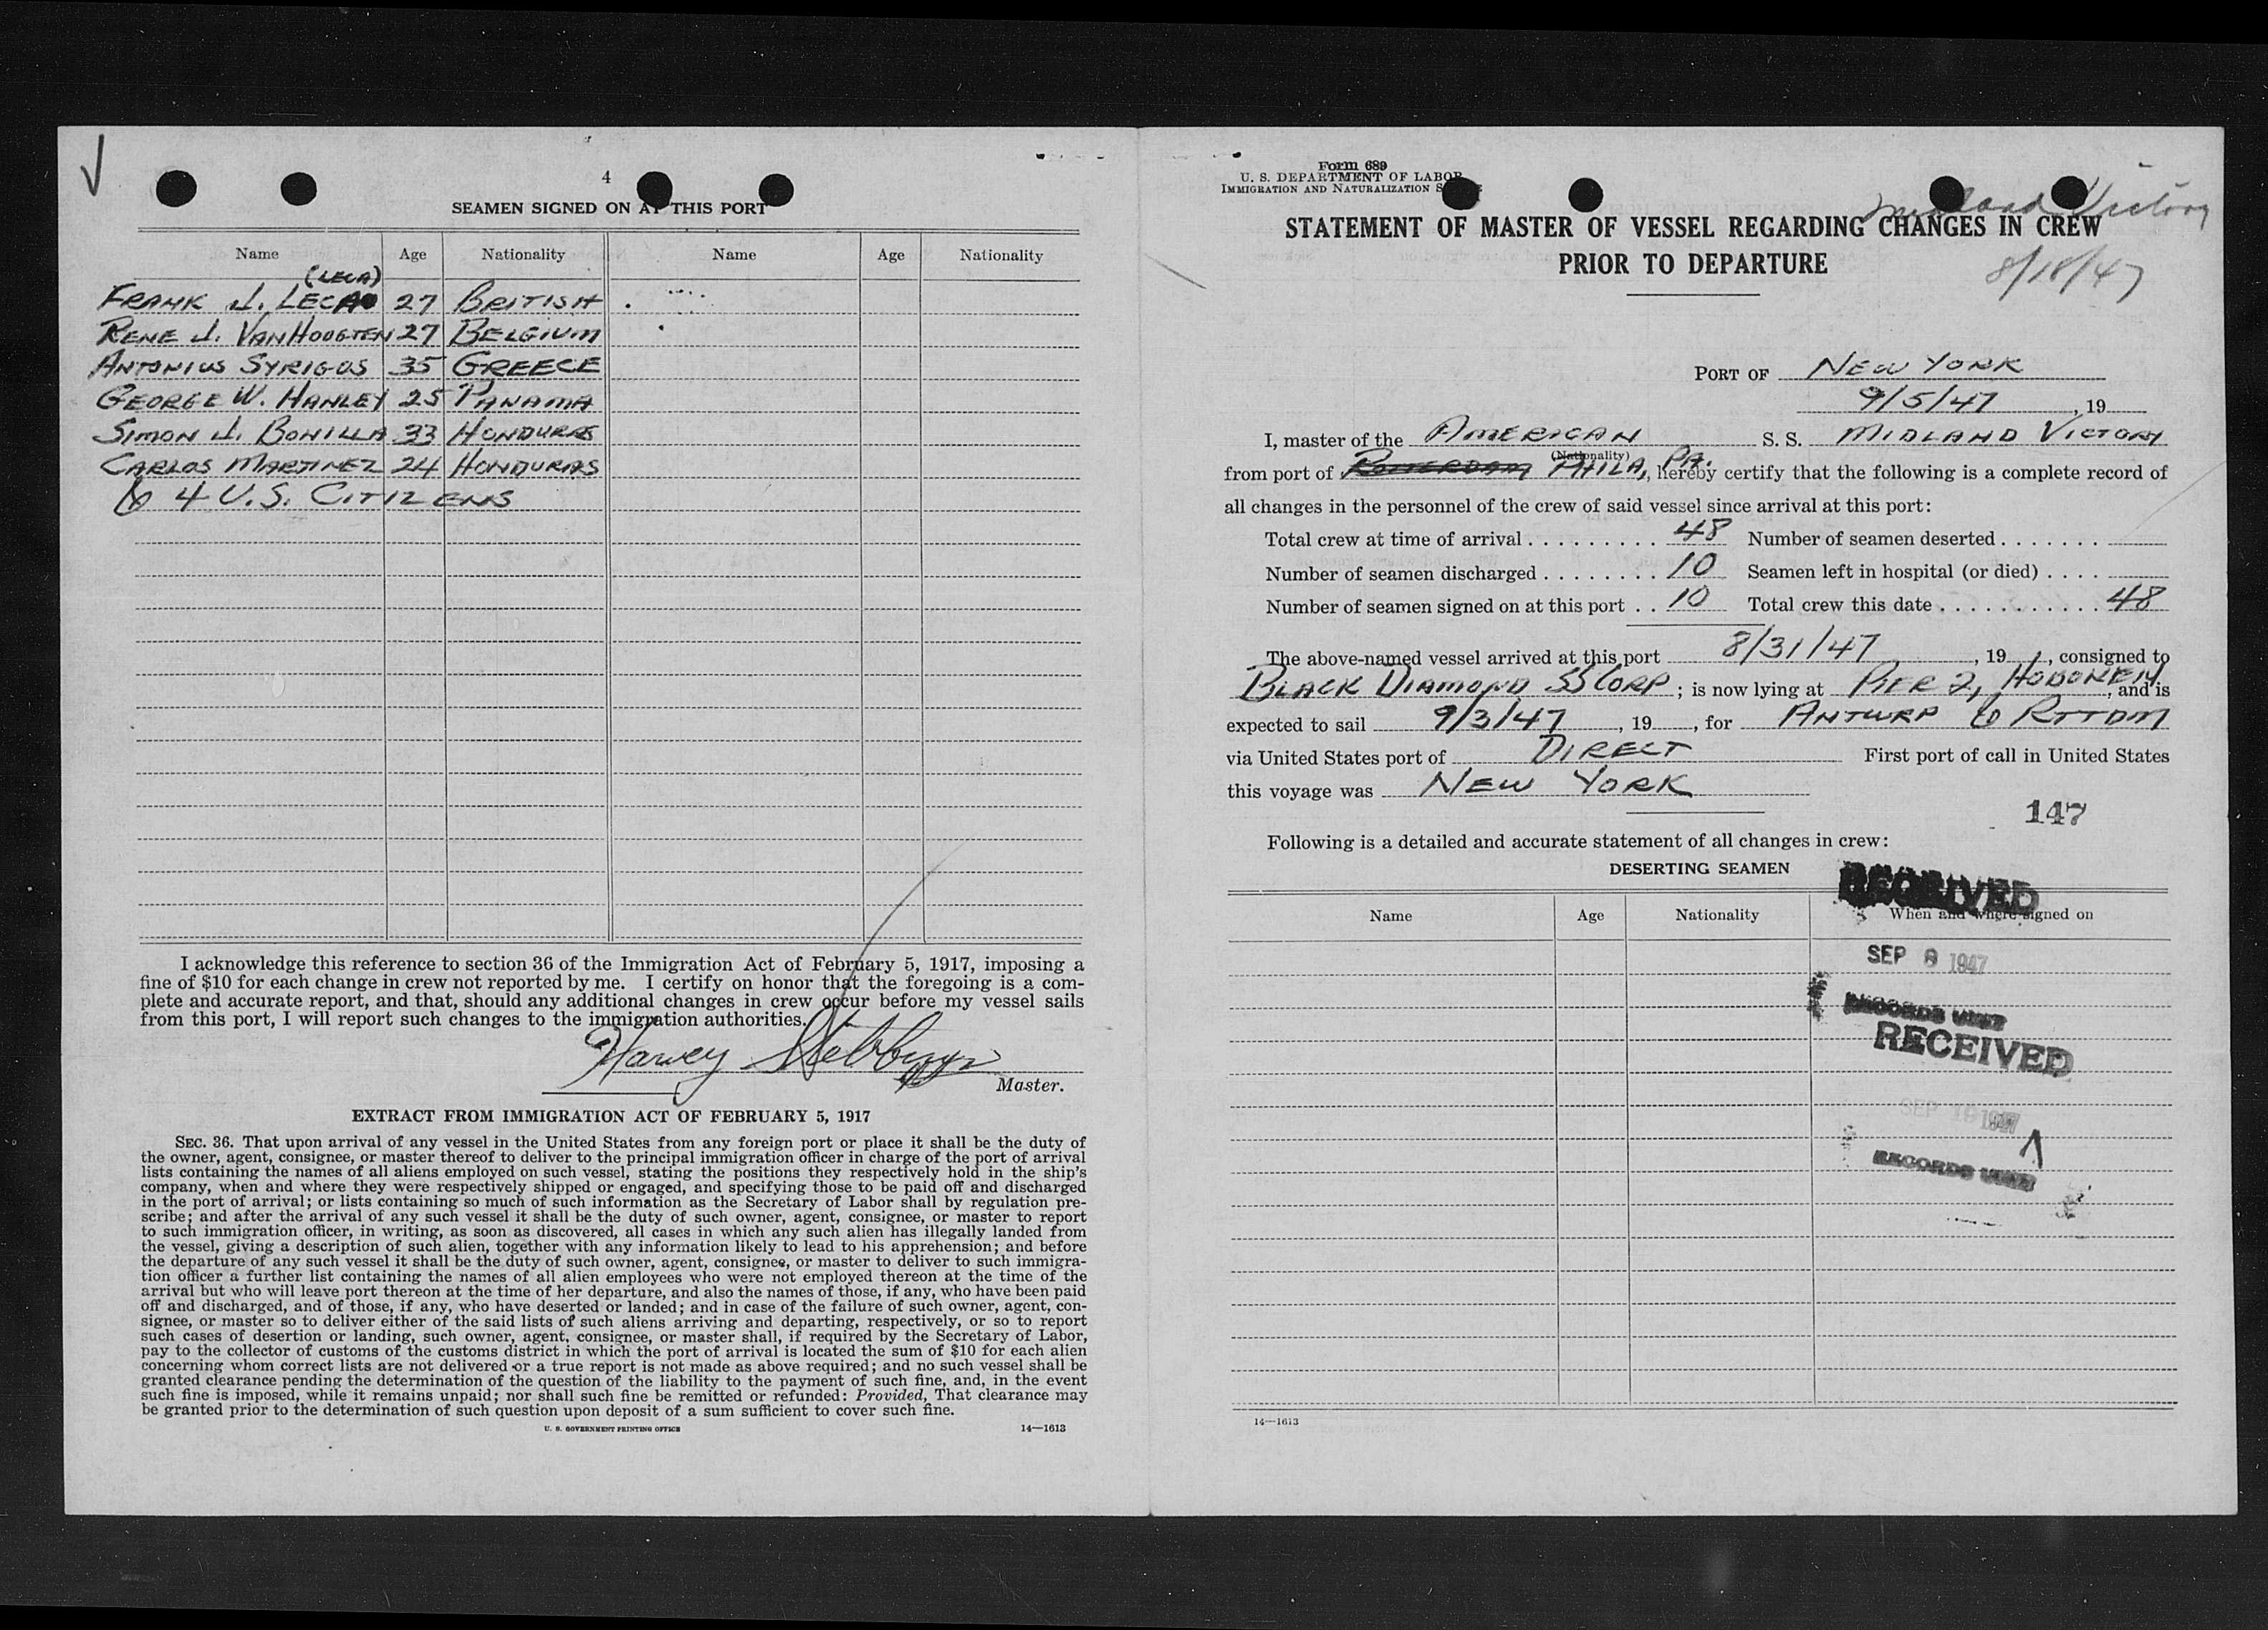 4
SEAMEN SIGNED ON AT THIS PORT
Name Age Nationality Name Age Nationality
(LECA)
FRANK J. LECA 27 BRITISH
RENE J. VANHOOGTEN 27 BELGIUM
ANTONIUS SYRIGOS 35 GREECE
GEORGE W. HANLEY 25 PANAMA
SIMON J. BONILLA 33 HONDURAS
CARLOS MARTINEZ 24 HONDURAS
& 4 U.S. CITIZENS
I acknowledge this reference to section 36 of the Immigration Act of February 5, 1917, imposing a
fine of $10 for each change in crew not reported by me. I certify on honor that the foregoing is a com-
plete and accurate report, and that, should any additional changes in crew occur before my vessel sails
from this port, I will report such changes to the immigration authorities.
Harvey Stebbings
Master.
EXTRACT FROM IMMIGRATION ACT OF FEBRUARY 5, 1917
SEC. 36. That upon arrival of any vessel in the United States from any foreign port or place it shall be the duty of
the owner, agent, consignee, or master thereof to deliver to the principal immigration officer in charge of the port of arrival
lists containing the names of all aliens employed on such vessel, stating the positions they respectively hold in the ship's
company, when and where they were respectively shipped or engaged, and specifying those to be paid off and discharged
in the port of arrival; or lists containing so much of such information as the Secretary of Labor shall by regulation pre-
scribe; and after the arrival of any such vessel it shall be the duty of such owner, agent, consignee, or master to report
to such immigration officer, in writing, as soon as discovered, all cases in which any such alien has illegally landed from
the vessel, giving a description of such alien, together with any information likely to lead to his apprehension; and before
the departure of any such vessel it shall be the duty of such owner, agent, consignee, or master to deliver to such immigra-
tion officer a further list containing the names of all alien employees who were not employed thereon at the time of the
arrival but who will leave port thereon at the time of her departure, and also the names of those, if any, who have been paid
off and discharged, and of those, if any, who have deserted or landed; and in case of the failure of such owner, agent, con-
signee, or master so to deliver either of the said lists of such aliens arriving and departing, respectively, or so to report
such cases of desertion or landing, such owner, agent, consignee, or master shall, if required by the Secretary of Labor,
pay to the collector of customs of the customs district in which the port of arrival is located the sum of $10 for each alien
concerning whom correct lists are not delivered or a true report is not made as above required; and no such vessel shall be
granted clearance pending the determination of the question of the liability to the payment of such fine, and, in the event
such fine is imposed, while it remains unpaid; nor shall such fine be remitted or refunded: Provided, That clearance may
be granted prior to the determination of such question upon deposit of a sum sufficient to cover such fine.
U. S. GOVERNMENT PRINTING OFFICE 14—1613
Form 689
U. S. DEPARTMENT OF LABOR
IMMIGRATION AND NATURALIZATION
Midland Victory
STATEMENT OF MASTER OF VESSEL REGARDING CHANGES IN CREW
PRIOR TO DEPARTURE
8/18/47
PORT OF NEW YORK
9/5/47, 19
I, master of the AMERICAN S. S. MIDLAND VICTORY
(Nationality)
from port of ROTTERDAM PHILA, PA., hereby certify that the following is a complete record of
all changes in the personnel of the crew of said vessel since arrival at this port:
Total crew at time of arrival . . . . . . . . . 48 Number of seamen deserted . . . . . . .
Number of seamen discharged . . . . . . . . 10 Seamen left in hospital (or died) . . . .
Number of seamen signed on at this port . . 10 Total crew this date . . . . . . . . . . . 48
The above-named vessel arrived at this port 8/31/47, 19 , consigned to
BLACK DIAMOND SS CORP; is now lying at PIER 2, HOBOKEN, and is
expected to sail 9/3/47, 19 , for ANTWRP & RTTDM
via United States port of DIRECT First port of call in United States
this voyage was NEW YORK
147
Following is a detailed and accurate statement of all changes in crew:
DESERTING SEAMEN
RECEIVED
Name Age Nationality When and where signed on
SEP 8 1947
RECORDS UNIT
RECEIVED
SEP 10 1947
RECORDS UNIT
14—1613